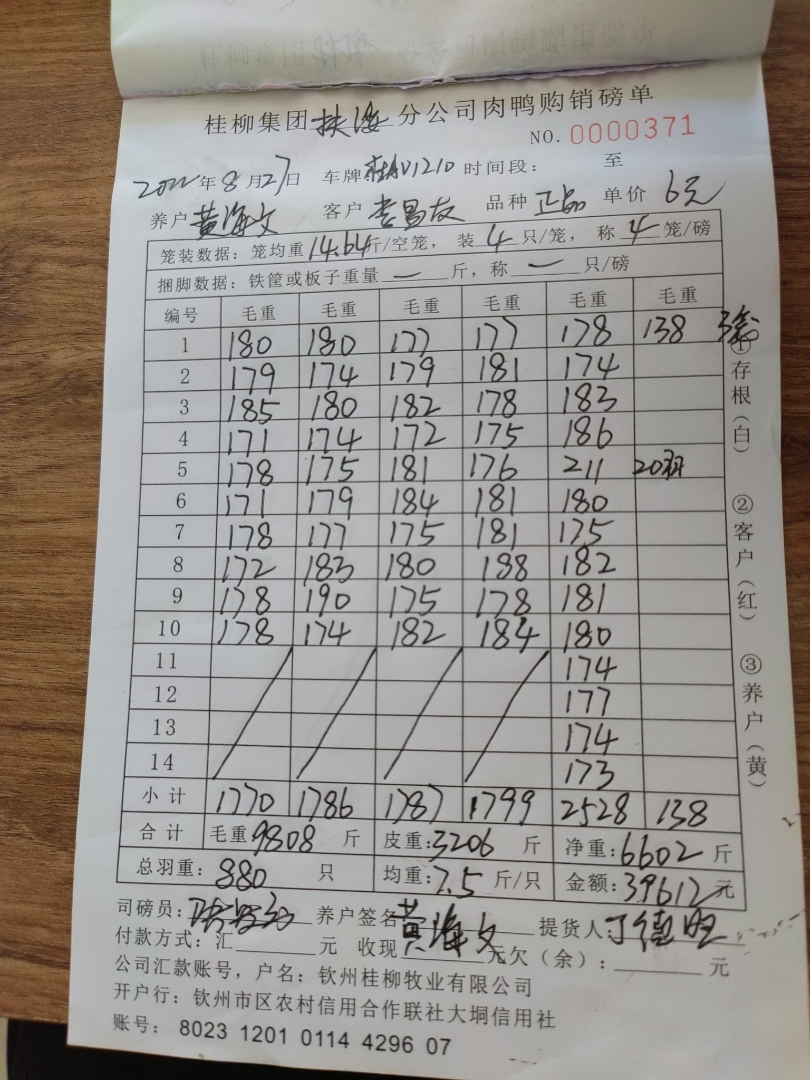 桂柳集团扶海分公司肉鸭购销磅单
NO. 0000371
2022年8月27日 车牌 桂AV1210 时间段： 至
养户 黄海文 客户 李昌友 品种 正品 单价 6元
笼装数据：笼均重14.64斤/空笼，装 4 只/笼，称 4 笼/磅
捆脚数据：铁筐或板子重量 — 斤，称 — 只/磅
编号 毛重 毛重 毛重 毛重 毛重 毛重
1 180 180 177 177 178 138 3笼
2 179 174 179 181 174
3 185 180 182 178 183
4 171 174 172 175 186
5 178 175 181 176 211 20羽
6 171 179 184 181 180
7 178 177 175 181 175
8 172 183 180 188 182
9 178 190 175 178 181
10 178 174 182 184 180
11 174
12 177
13 174
14 173
小计 1770 1786 1787 1799 2528 138
合计 毛重：9808 斤 皮重：3206 斤 净重：6602 斤
总羽重： 880 只 均重：7.5 斤/只 金额：39612元
司磅员： 养户签名：黄海文 提货人：丁德旺
付款方式：汇 元 收现 元欠（余）： 元
公司汇款账号，户名：钦州桂柳牧业有限公司
开户行：钦州市区农村信用合作联社大垌信用社
账号： 8023 1201 0114 4296 07
①存根（白） ②客户（红） ③养户（黄）